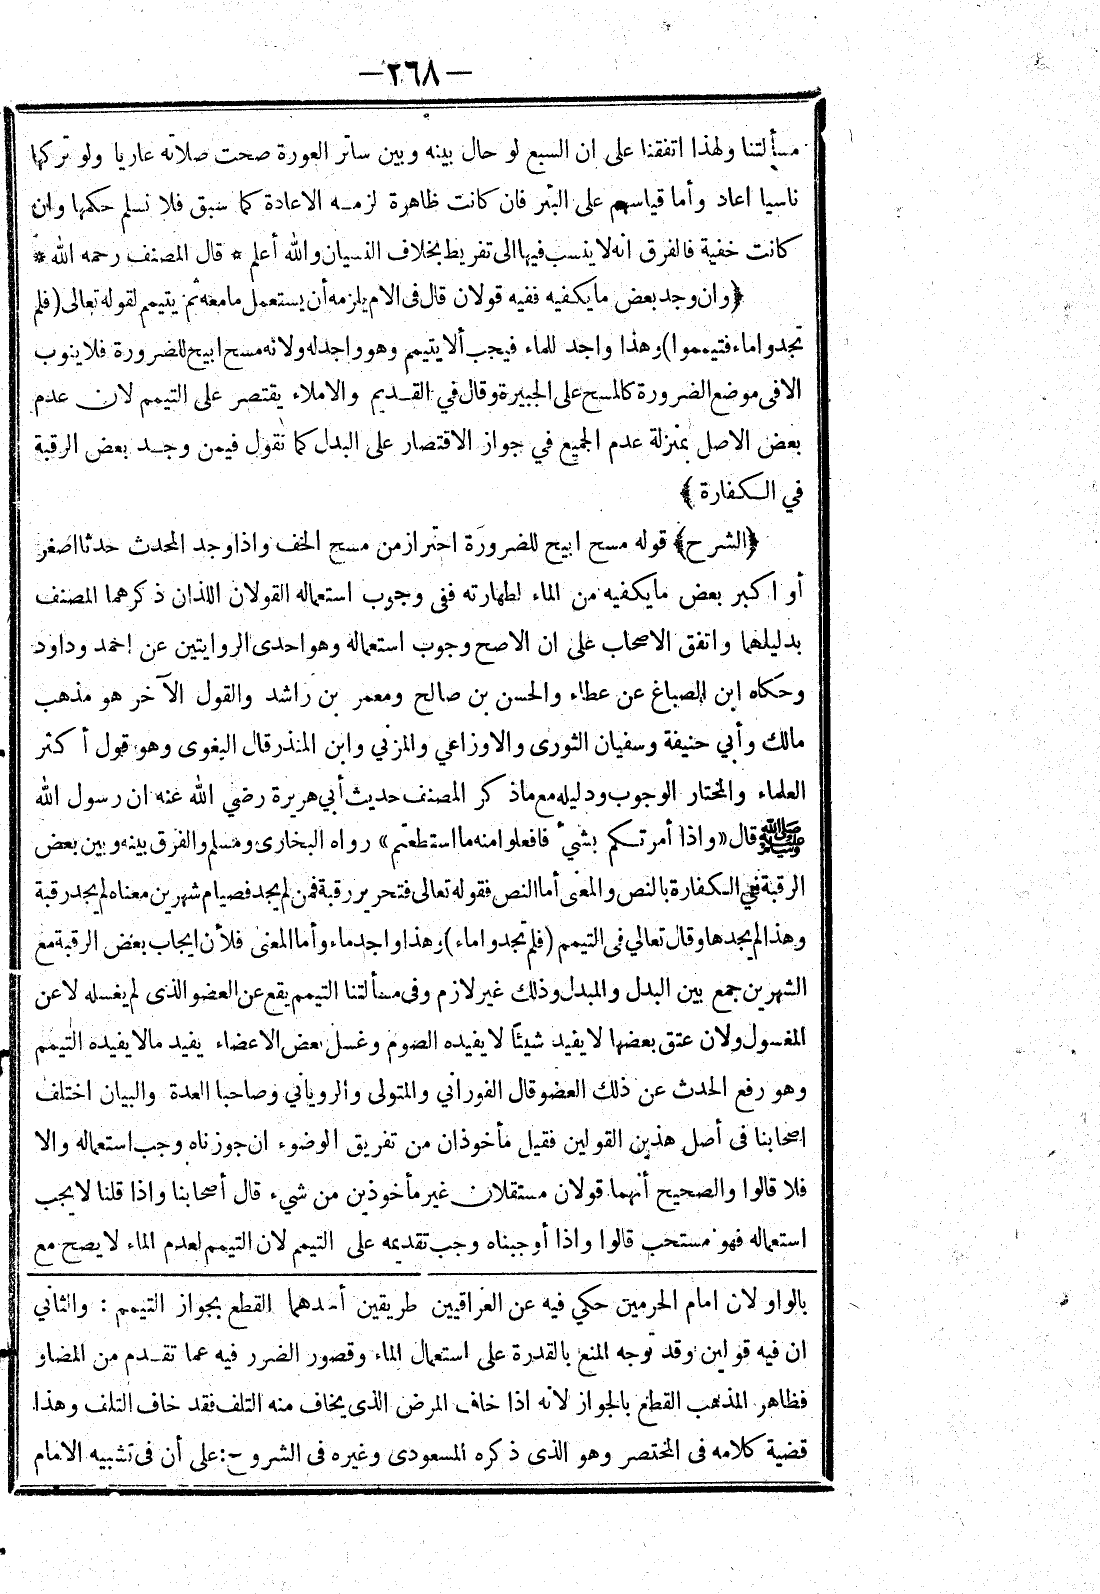 — ٢٦٨ —
مسألتنا ولهذا اتفقنا على ان السبع لو حال بينه وبين ساتر العورة صحت صلاته عاريا ولو تركها
ناسيا اعاد وأما قياسهم على البئر فان كانت ظاهرة لزمه الاعادة كما سبق فلا نسلم حكمها وان
كانت خفية فالفرق انه لا ينسب فيها الى تفريط بخلاف النسيان والله أعلم * قال المصنف رحمه الله *
﴿وان وجد بعض ما يكفيه ففيه قولان قال فى الام يلزمه أن يستعمل ما معه ثم يتيمم لقوله تعالى (فلم
تجدوا ماء فتيمموا) وهذا واجد للماء فيجب ألا يتيمم وهو واجد له ولانه مسح ابيح للضرورة فلا ينوب
الا فى موضع الضرورة كالمسح على الجبيرة وقال في القديم والاملاء يقتصر على التيمم لان عدم
بعض الاصل بمنزلة عدم الجميع في جواز الاقتصار على البدل كما نقول فيمن وجد بعض الرقبة
في الكفارة﴾
﴿الشرح﴾ قوله مسح ابيح للضرورة احتراز من مسح الخف واذا وجد المحدث حدثا اصغر
أو اكبر بعض ما يكفيه من الماء لطهارته ففى وجوب استعماله القولان اللذان ذكرهما المصنف
بدليلهما واتفق الاصحاب على ان الاصح وجوب استعماله وهو احدى الروايتين عن احمد وداود
وحكاه ابن الصباغ عن عطاء والحسن بن صالح ومعمر بن راشد والقول الآخر هو مذهب
مالك وأبي حنيفة وسفيان الثورى والاوزاعي والمزني وابن المنذر قال البغوى وهو قول أكثر
العلماء والمختار الوجوب ودليله مع ما ذكر المصنف حديث أبي هريرة رضي الله عنه ان رسول الله
ﷺ قال «واذا أمرتكم بشيء فافعلوا منه ما استطعتم» رواه البخارى ومسلم والفرق بينه وبين بعض
الرقبة في الكفارة بالنص والمعنى أما النص فقوله تعالى فتحرير رقبة فمن لم يجد فصيام شهرين معناه لم يجد رقبة
وهذا لم يجدها وقال تعالي فى التيمم (فلم تجدوا ماء) وهذا واجد ماء وأما المعنى فلأن ايجاب بعض الرقبة مع
الشهرين جمع بين البدل والمبدل وذلك غير لازم وفى مسألتنا التيمم يقع عن العضو الذى لم يغسله لا عن
المغسول ولان عتق بعضها لا يفيد شيئا لا يفيده الصوم وغسل بعض الاعضاء يفيد مالا يفيده التيمم
وهو رفع الحدث عن ذلك العضو قال الفوراني والمتولى والروياني وصاحبا العدة والبيان اختلف
اصحابنا فى أصل هذين القولين فقيل مأخوذان من تفريق الوضوء ان جوزناه وجب استعماله والا
فلا قالوا والصحيح أنهما قولان مستقلان غير مأخوذين من شيء قال أصحابنا واذا قلنا لا يجب
استعماله فهو مستحب قالوا واذا أوجبناه وجب تقديمه على التيمم لان التيمم لعدم الماء لا يصح مع
بالواو لان امام الحرمين حكي فيه عن العراقيين طريقين أحدهما القطع بجواز التيمم : والثاني
ان فيه قولين وقد توجه المنع بالقدرة على استعمال الماء وقصور الضرر فيه عما تقدم من المضار
فظاهر المذهب القطع بالجواز لانه اذا خاف المرض الذى يخاف منه التلف فقد خاف التلف وهذا
قضية كلامه فى المختصر وهو الذى ذكره المسعودى وغيره فى الشروح: على أن فى تشبيه الامام